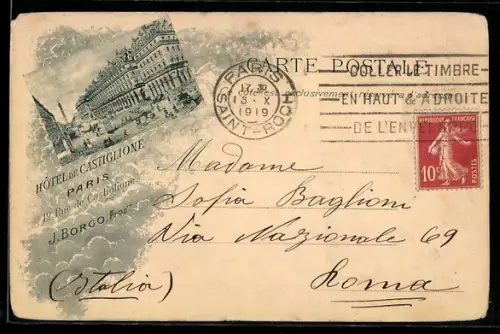 CARTE POSTALE
PARIS
17 30
13 · X
1919
SAINT-ROCH
COLLER LE TIMBRE
EN HAUT & A DROITE
DE L'ENVELOPPE
exclusivement
REPUBLIQUE FRANÇAISE
10c
POSTES
HÔTEL DE CASTIGLIONE
PARIS
12 Rue de Castiglione
J. BORGO Propre
Madame
Sofia Baglioni
Via Nazionale 69
(Italia)
Roma